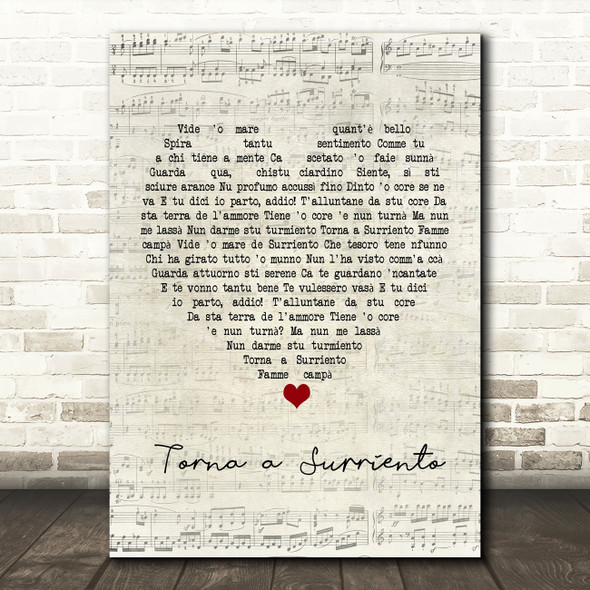 Vide 'o mare quant'è bello
Spira tantu sentimento Comme tu
a chi tiene a mente Ca scetato 'o faie sunnà
Guarda qua, chistu ciardino Siente, sì sti
sciure arance Nu profumo accussì fino Dinto 'o core se ne
va E tu dici io parto, addio! T'alluntane da stu core Da
sta terra de l'ammore Tiene 'o core 'e nun turnà Ma nun
me lassà Nun darme stu turmiento Torna a Surriento Famme
campà Vide 'o mare de Surriento Che tesoro tene nfunno
Chi ha girato tutto 'o munno Nun l'ha visto comm'a ccà
Guarda attuorno sti serene Ca te guardano 'ncantate
E te vonno tantu bene Te vulessero vasà E tu dici
io parto, addio! T'alluntane da stu core
Da sta terra de l'ammore Tiene 'o core
'e nun turnà? Ma nun me lassà
Nun darme stu turmiento
Torna a Surriento
Famme campà
Torna a Surriento